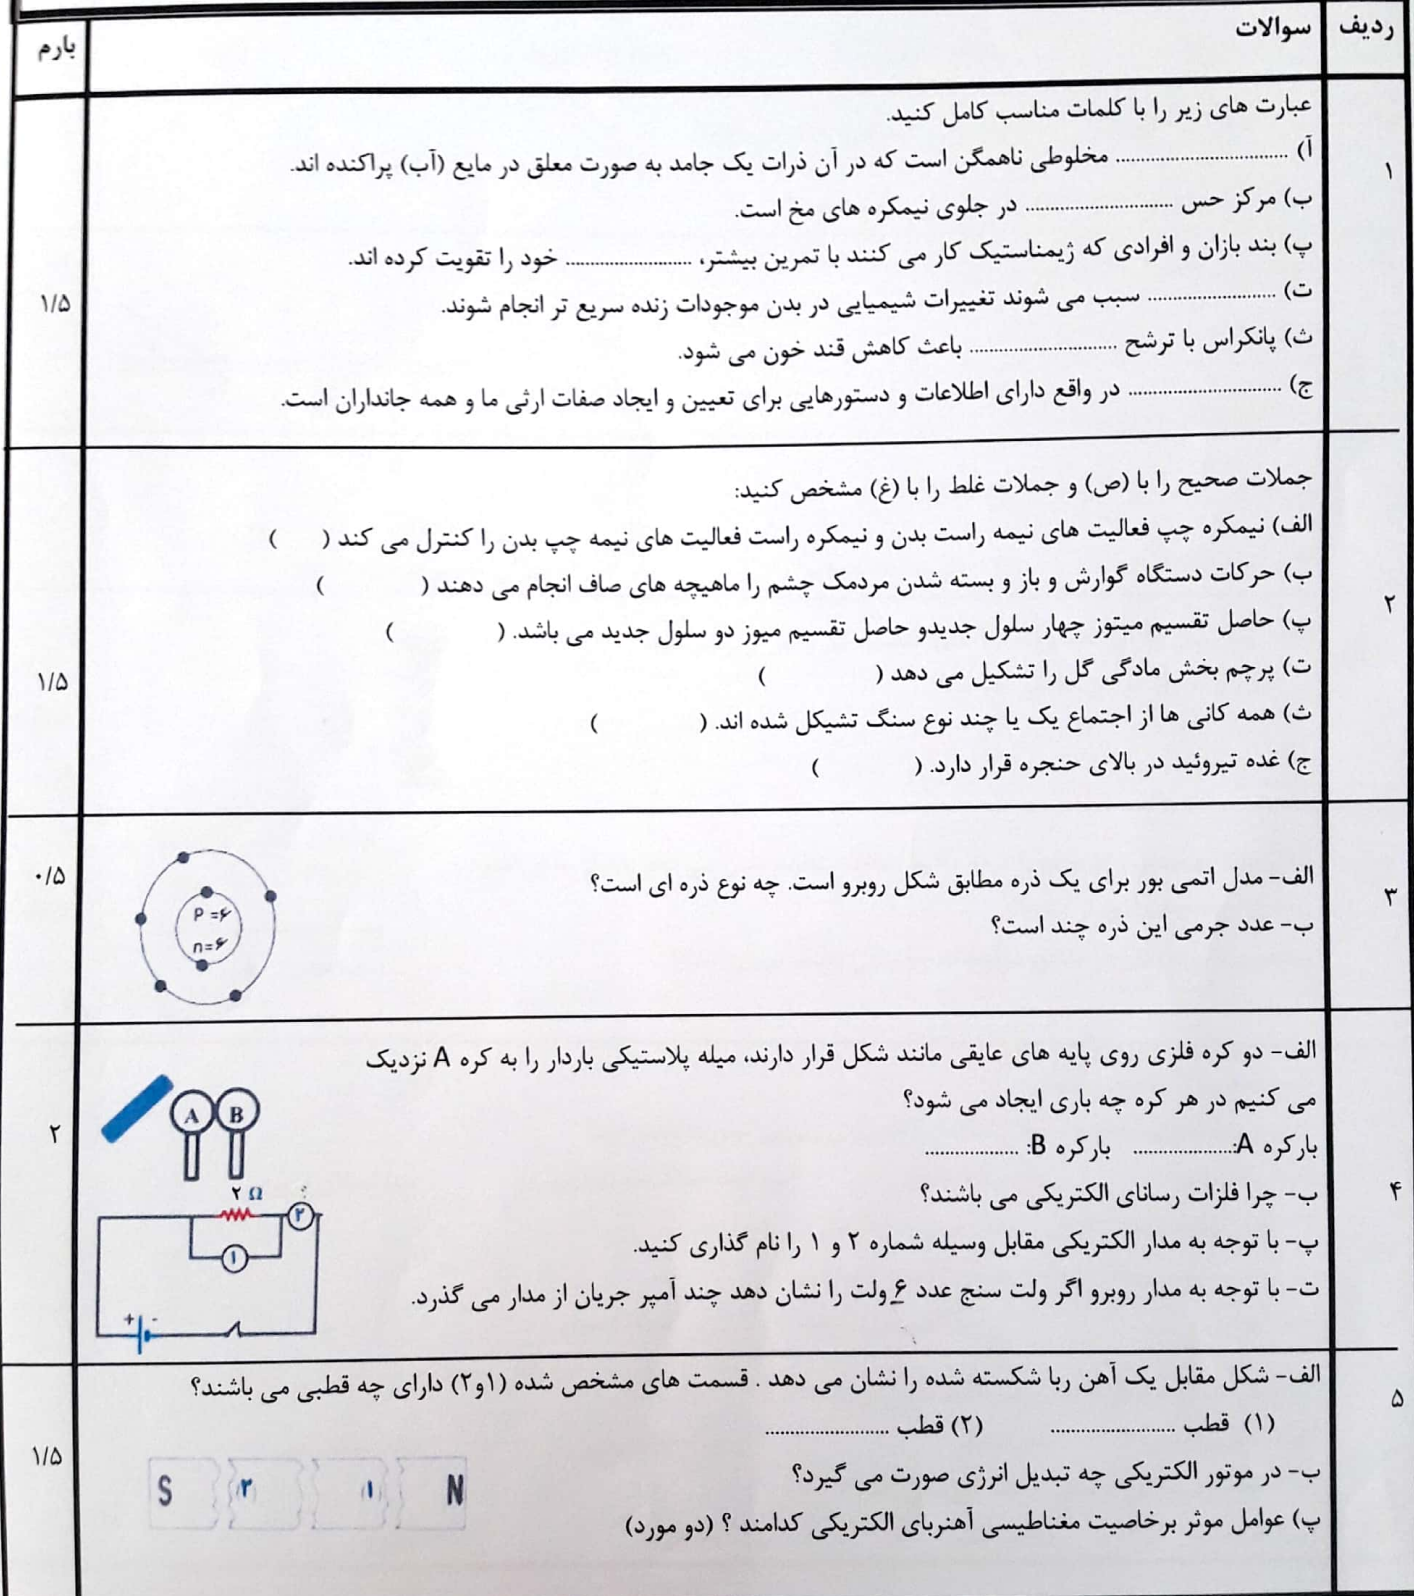 ردیف
سوالات
بارم
۱
عبارت های زیر را با کلمات مناسب کامل کنید.
آ) .................... مخلوطی ناهمگن است که در آن ذرات یک جامد به صورت معلق در مایع (آب) پراکنده اند.
ب) مرکز حس .................... در جلوی نیمکره های مخ است.
پ) بند بازان و افرادی که ژیمناستیک کار می کنند با تمرین بیشتر، .................... خود را تقویت کرده اند.
ت) .................... سبب می شوند تغییرات شیمیایی در بدن موجودات زنده سریع تر انجام شوند.
ث) پانکراس با ترشح .................... باعث کاهش قند خون می شود.
ج) .................... در واقع دارای اطلاعات و دستورهایی برای تعیین و ایجاد صفات ارثی ما و همه جانداران است.
۱/۵
۲
جملات صحیح را با (ص) و جملات غلط را با (غ) مشخص کنید:
الف) نیمکره چپ فعالیت های نیمه راست بدن و نیمکره راست فعالیت های نیمه چپ بدن را کنترل می کند ( )
ب) حرکات دستگاه گوارش و باز و بسته شدن مردمک چشم را ماهیچه های صاف انجام می دهند ( )
پ) حاصل تقسیم میتوز چهار سلول جدیدو حاصل تقسیم میوز دو سلول جدید می باشد. ( )
ت) پرچم بخش مادگی گل را تشکیل می دهد ( )
ث) همه کانی ها از اجتماع یک یا چند نوع سنگ تشیکل شده اند. ( )
ج) غده تیروئید در بالای حنجره قرار دارد. ( )
۱/۵
۳
الف- مدل اتمی بور برای یک ذره مطابق شکل روبرو است. چه نوع ذره ای است؟
ب- عدد جرمی این ذره چند است؟
P =۶
n=۶
۰/۵
۴
الف- دو کره فلزی روی پایه های عایقی مانند شکل قرار دارند، میله پلاستیکی باردار را به کره A نزدیک
می کنیم در هر کره چه باری ایجاد می شود؟
بارکره A:.................... بارکره B: ....................
ب- چرا فلزات رسانای الکتریکی می باشند؟
پ- با توجه به مدار الکتریکی مقابل وسیله شماره ۲ و ۱ را نام گذاری کنید.
ت- با توجه به مدار روبرو اگر ولت سنج عدد ۶ ولت را نشان دهد چند آمپر جریان از مدار می گذرد.
A B
۲ Ω
۲
۱
+ -
۲
۵
الف- شکل مقابل یک آهن ربا شکسته شده را نشان می دهد . قسمت های مشخص شده (۱و۲) دارای چه قطبی می باشند؟
(۱) قطب .................... (۲) قطب ....................
ب- در موتور الکتریکی چه تبدیل انرژی صورت می گیرد؟
پ) عوامل موثر برخاصیت مغناطیسی آهنربای الکتریکی کدامند ؟ (دو مورد)
S (۲) (۱) N
۱/۵